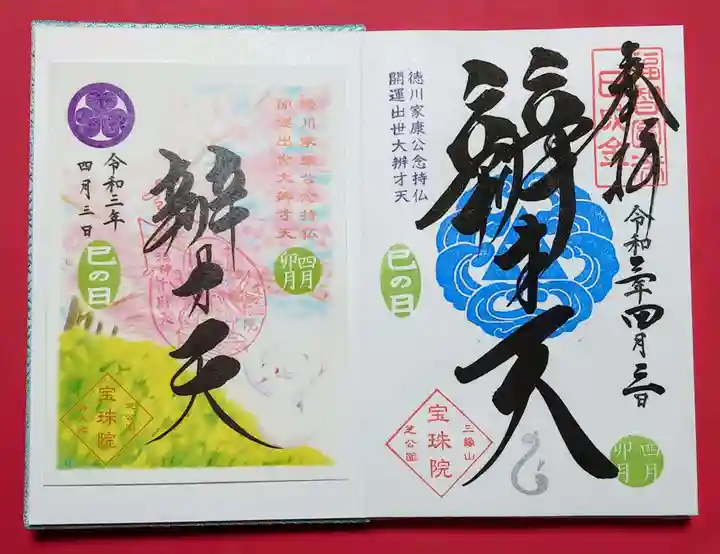 奉拝
福智円満
日成金
令和三年四月三日
辨才天
徳川家康公念持仏
開運出世大辨才天
巳の日
三縁山
宝珠院
芝公園
四月
卯月
徳川家康公念持仏
開運出世大辨才天
四月
卯月
辨才天
令和三年
四月三日
巳の日
宝珠院